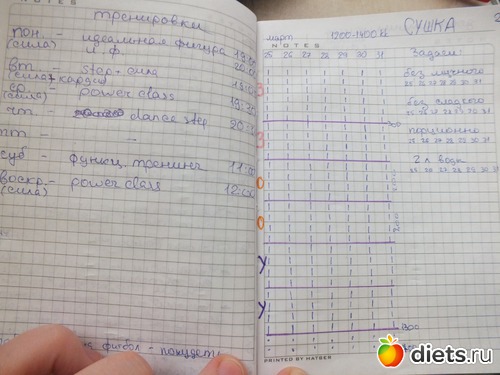 NOTES
тренировки
пон. - идеальная фигура 19:00
(сила) и.ф. 20:00
вт. - step + сила
(сила + кардио)
ср. - power class
(сила) 19:30
чт. - dance step 20:30
пт - -
суб - функц. тренинг 11:00
воскр. - power class 12:00
(сила)
на фитбол - похудеть
март 1200-1400 СУШКА
NOTES
25 26 27 28 29 30 31
З
З
О
О
У
У
Задачи:
без мучного
25 26 27 28 29 30 31
без сладкого
25 26 27 28 29 30 31
порционно
25 26 27 28 29 30 31
2 л воды
25 26 27 28 29 30 31
1300
PRINTED BY HATBER
diets.ru